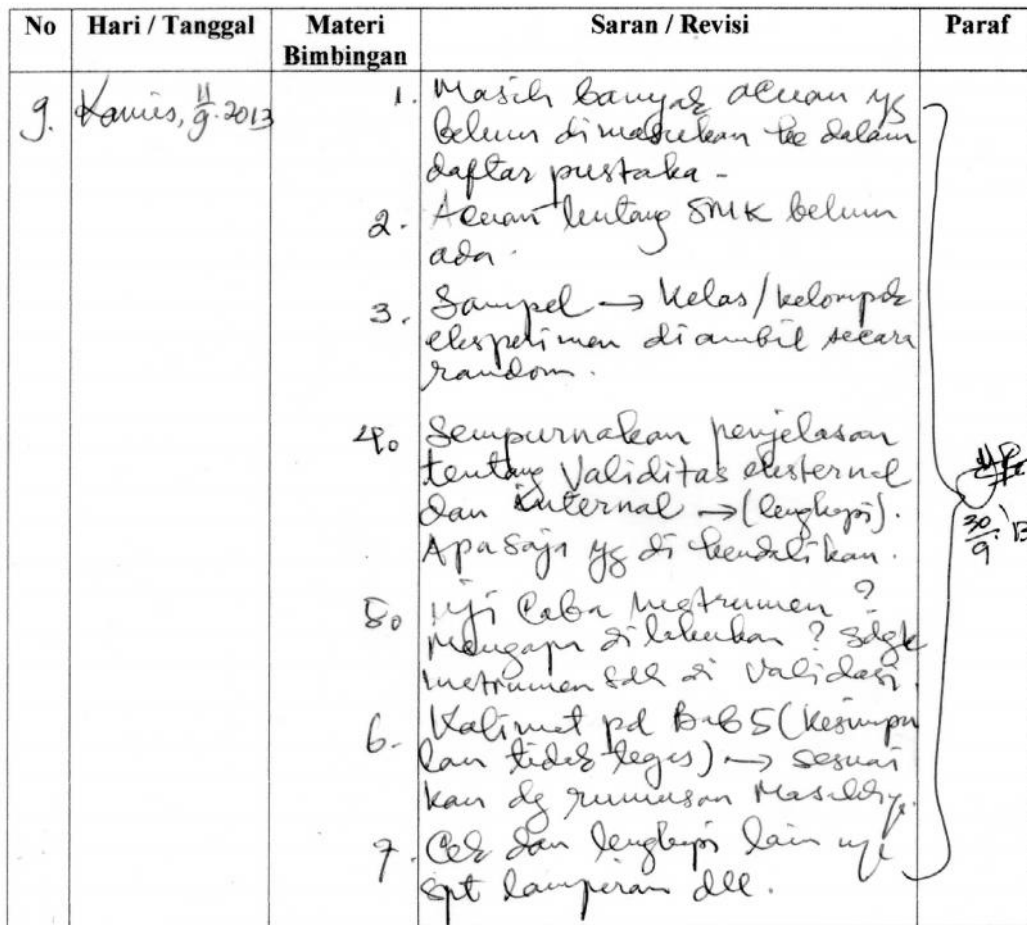 No Hari / Tanggal Materi Bimbingan Saran / Revisi Paraf
9. Kamis, 11/9-2013
1. Masih banyak acuan yg
belum dimasukan ke dalam
daftar pustaka -
2. Acuan tentang SMK belum
ada.
3. Sampel → Kelas/kelompok
eksperimen diambil secara
random.
4. Sempurnakan penjelasan
tentang Validitas eksternal
dan internal → (lengkapi).
Apa saja yg di kendalikan.
5. Uji Coba instrumen ?
Mengapa di lakukan ? sdgk
instrumen sdh di validasi.
6. Kalimat pd Bab 5 (kesimpu
lan tidak tegas) → sesuai
kan dg rumusan masalahnya.
7. Cek dan lengkapi lain nya
spt lampiran dll.
30/9 '13